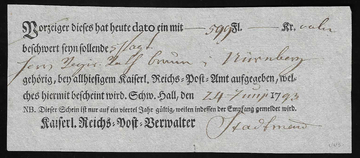 Vorzeiger dieses hat heute dato ein mit 599 Fl. Kr.
beschwert seyn sollende
Nürnberg
gehörig, bey allhiesigem Kaiserl. Reichs-Post-Amt aufgegeben, wel-
ches hiermit bescheint wird. Schw. Hall, den 24 Juny 1793
NB. Dieser Schein ist nur auf ein viertel Jahr gültig, weilen indessen der Empfang gemeldet wird.
Kaiserl. Reichs-Post-Verwalter